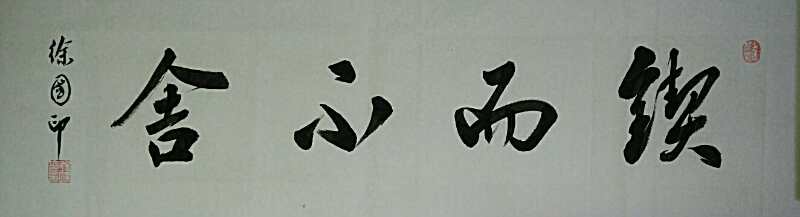 锲而不舍
徐国印